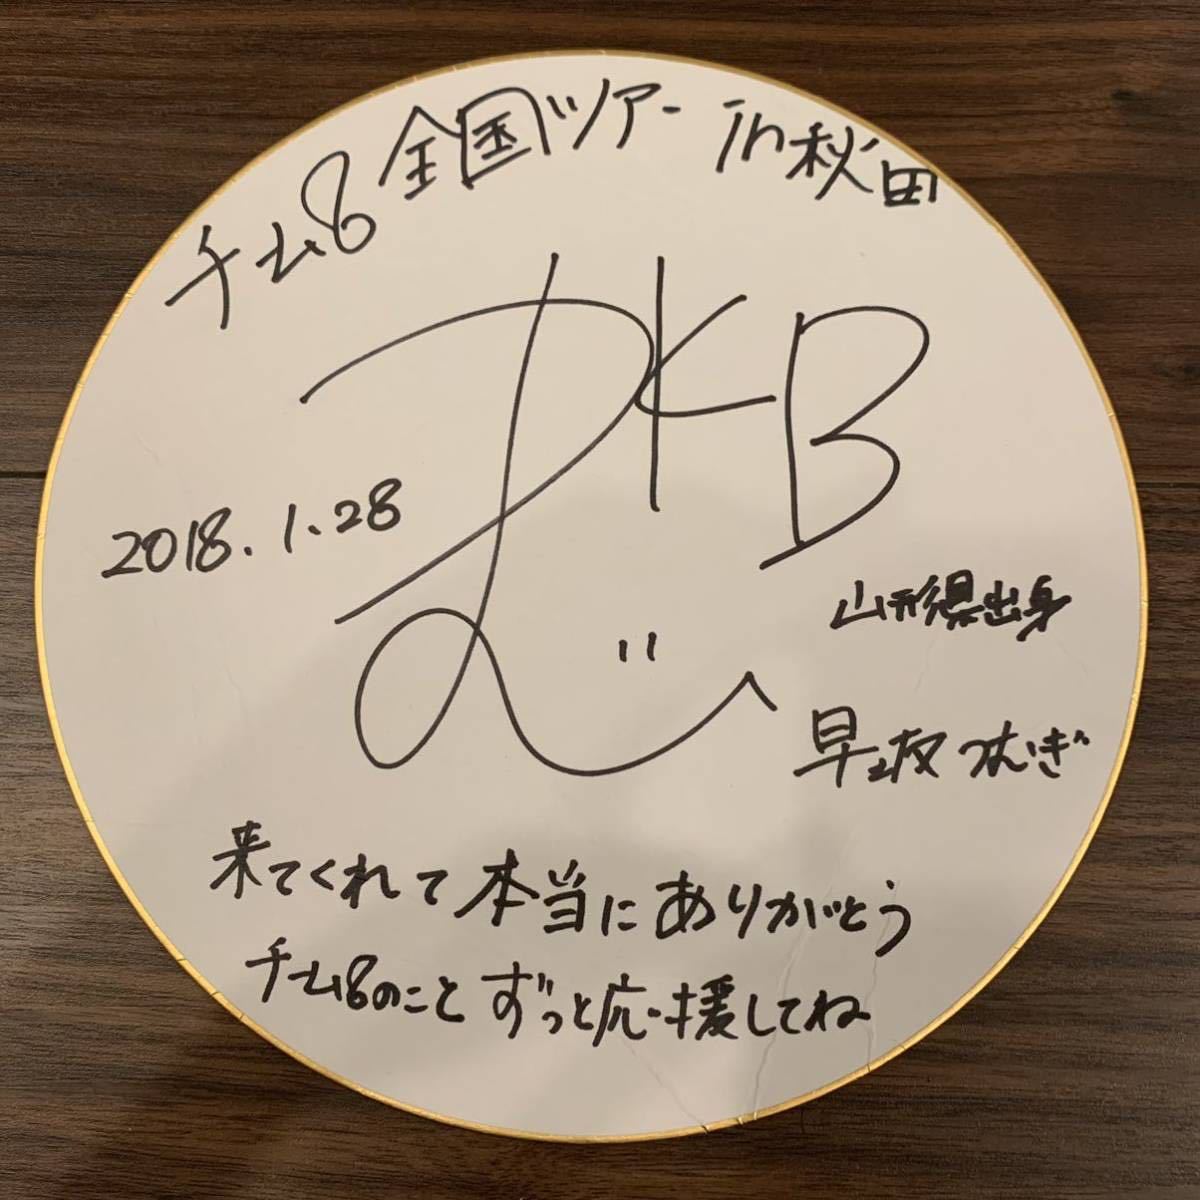 チーム8 全国ツアー in 秋田
KB
2018.1.28
山形県出身
早坂つむぎ
来てくれて本当にありがとう
チーム8のこと ずっと応援してね